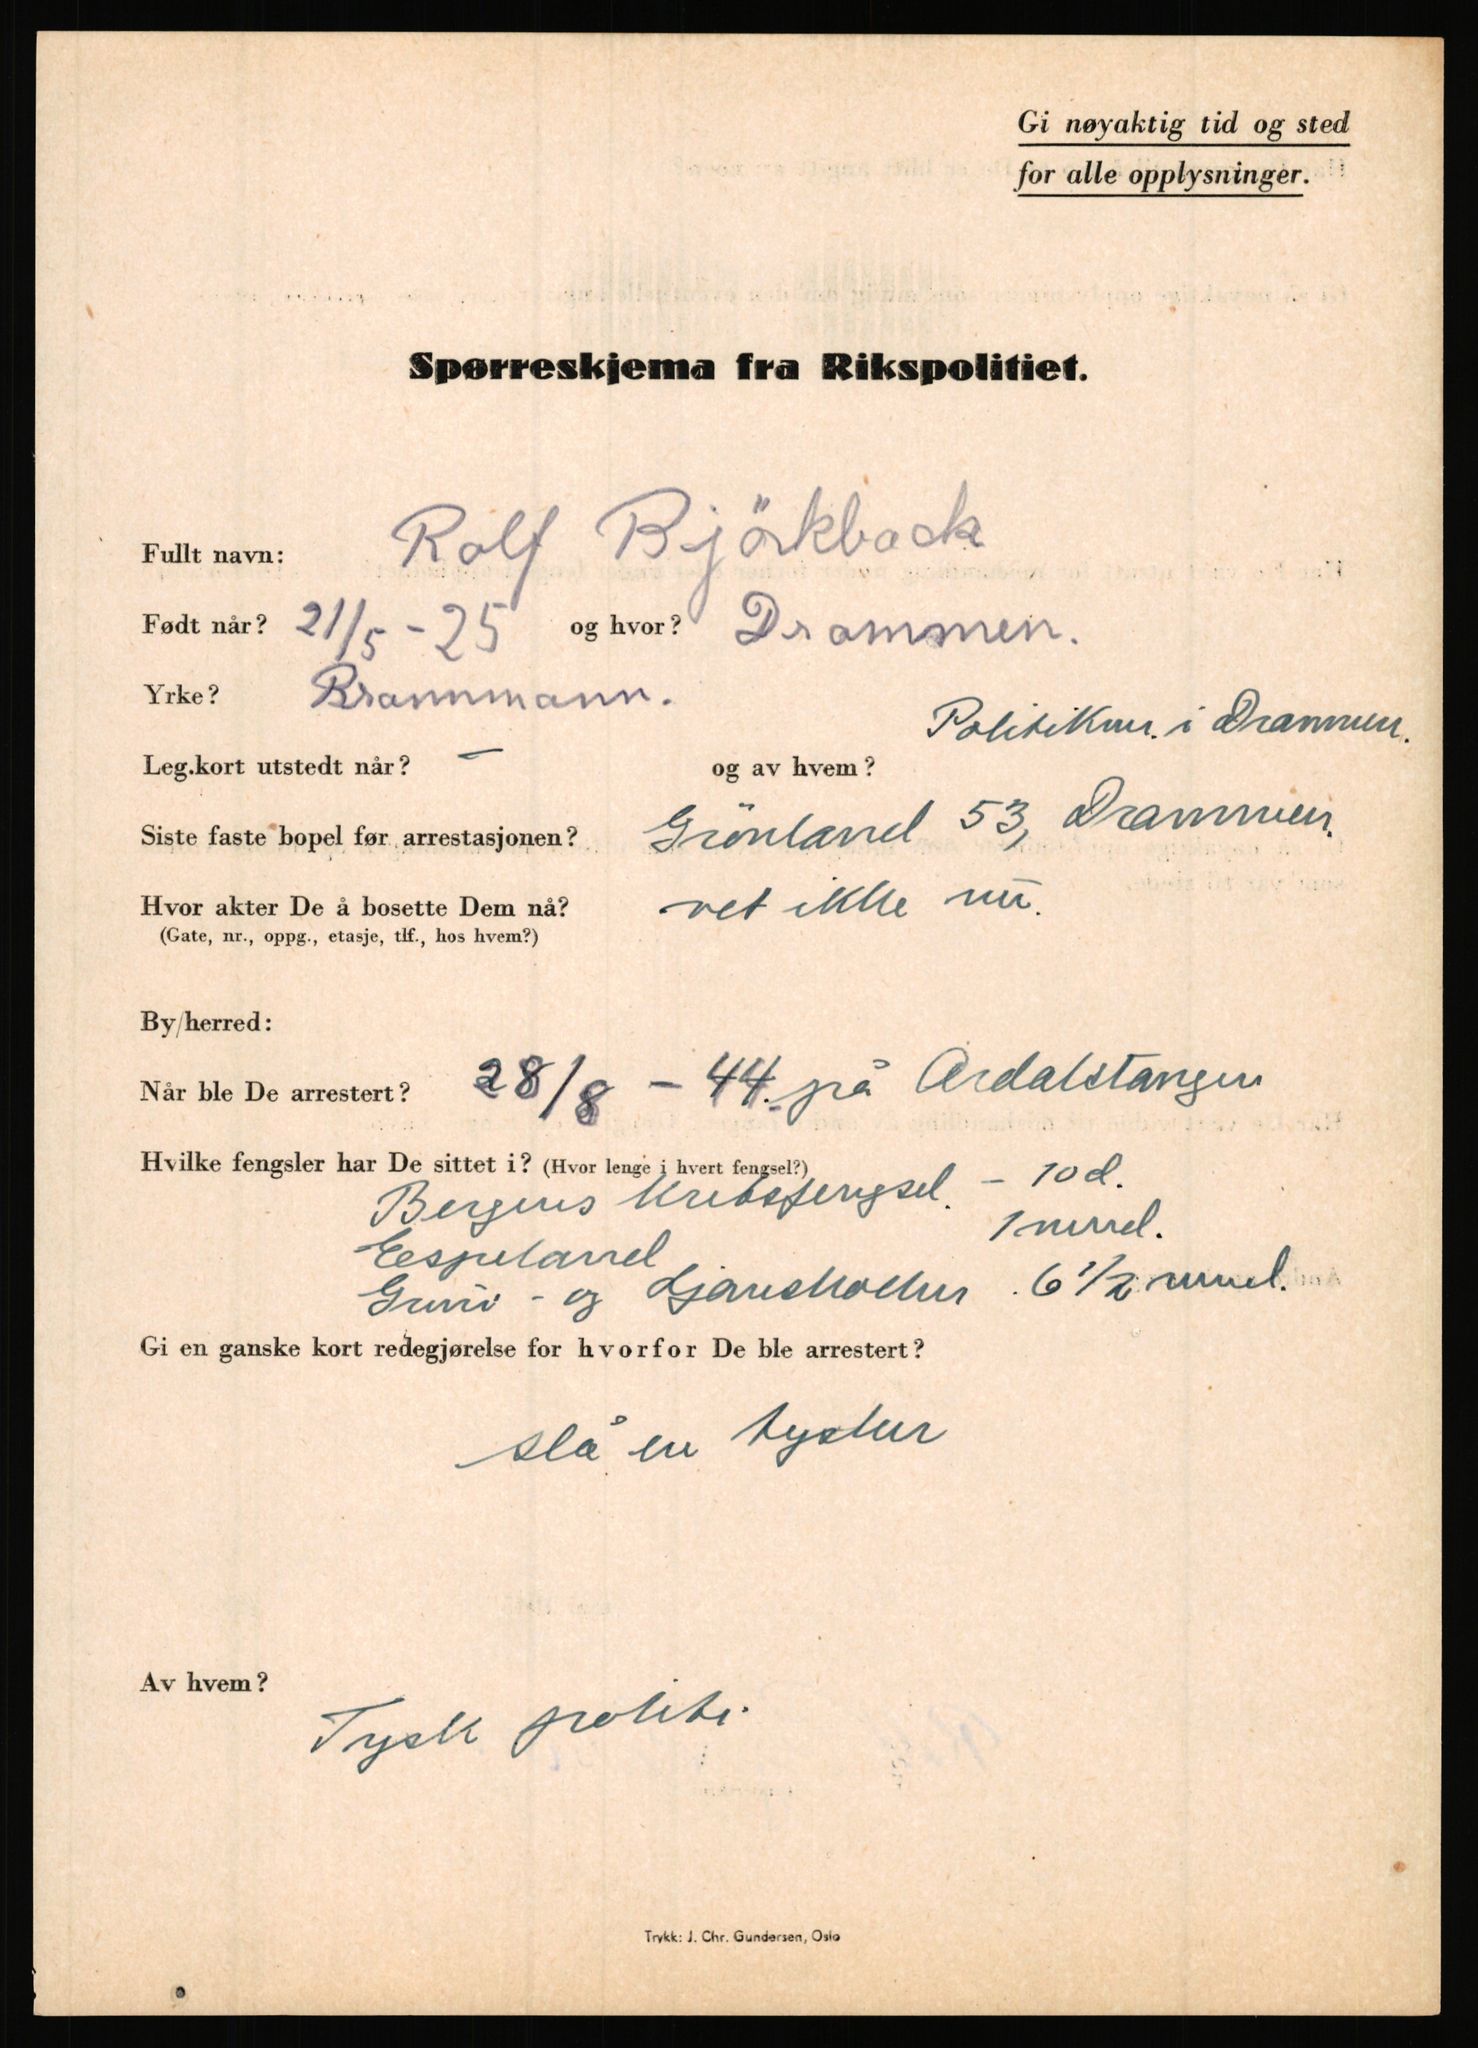 Gi nøyaktig tid og sted
for alle opplysninger.
Spørreskjema fra Rikspolitiet.
Fullt navn: Rolf Björkback
Født når? 21/5 - 25 og hvor? Drammen.
Yrke? Brannmann.
Leg.kort utstedt når? — og av hvem? Politikm. i Drammen.
Siste faste bopel før arrestasjonen? Grönland 53, Drammen.
Hvor akter De å bosette Dem nå? vet ikke nu.
(Gate, nr., oppg., etasje, tlf., hos hvem?)
By/herred:
Når ble De arrestert? 28/8 - 44. på Årdalstangen
Hvilke fengsler har De sittet i? (Hvor lenge i hvert fengsel?)
Bergens Kretsfengsel. - 10 d.
Espeland 1 mned.
Grini - og 6 1/2 mned.
Gi en ganske kort redegjørelse for hvorfor De ble arrestert?
slå en tysker
Av hvem?
Tysk politi.
Trykk: J. Chr. Gundersen, Oslo